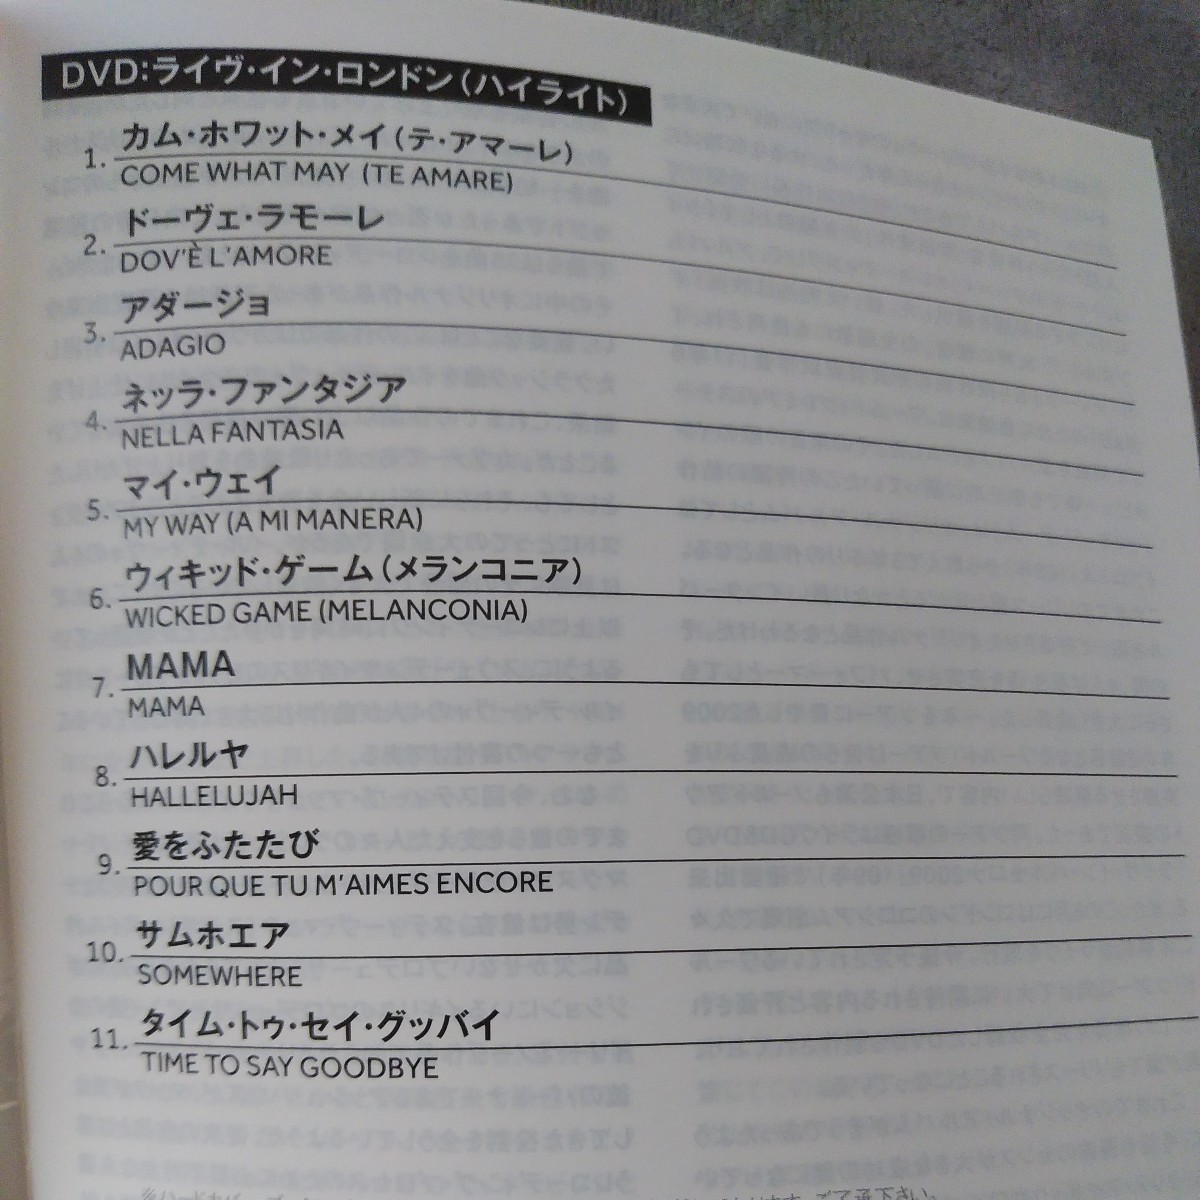 DVD:ライヴ・イン・ロンドン(ハイライト)
1. カム・ホワット・メイ(テ・アマーレ)
COME WHAT MAY (TE AMARE)
2. ドーヴェ・ラモーレ
DOV'È L'AMORE
3. アダージョ
ADAGIO
4. ネッラ・ファンタジア
NELLA FANTASIA
5. マイ・ウェイ
MY WAY (A MI MANERA)
6. ウィキッド・ゲーム(メランコニア)
WICKED GAME (MELANCONIA)
7. MAMA
MAMA
8. ハレルヤ
HALLELUJAH
9. 愛をふたたび
POUR QUE TU M'AIMES ENCORE
10. サムホエア
SOMEWHERE
11. タイム・トゥ・セイ・グッバイ
TIME TO SAY GOODBYE
ご了承下さい。